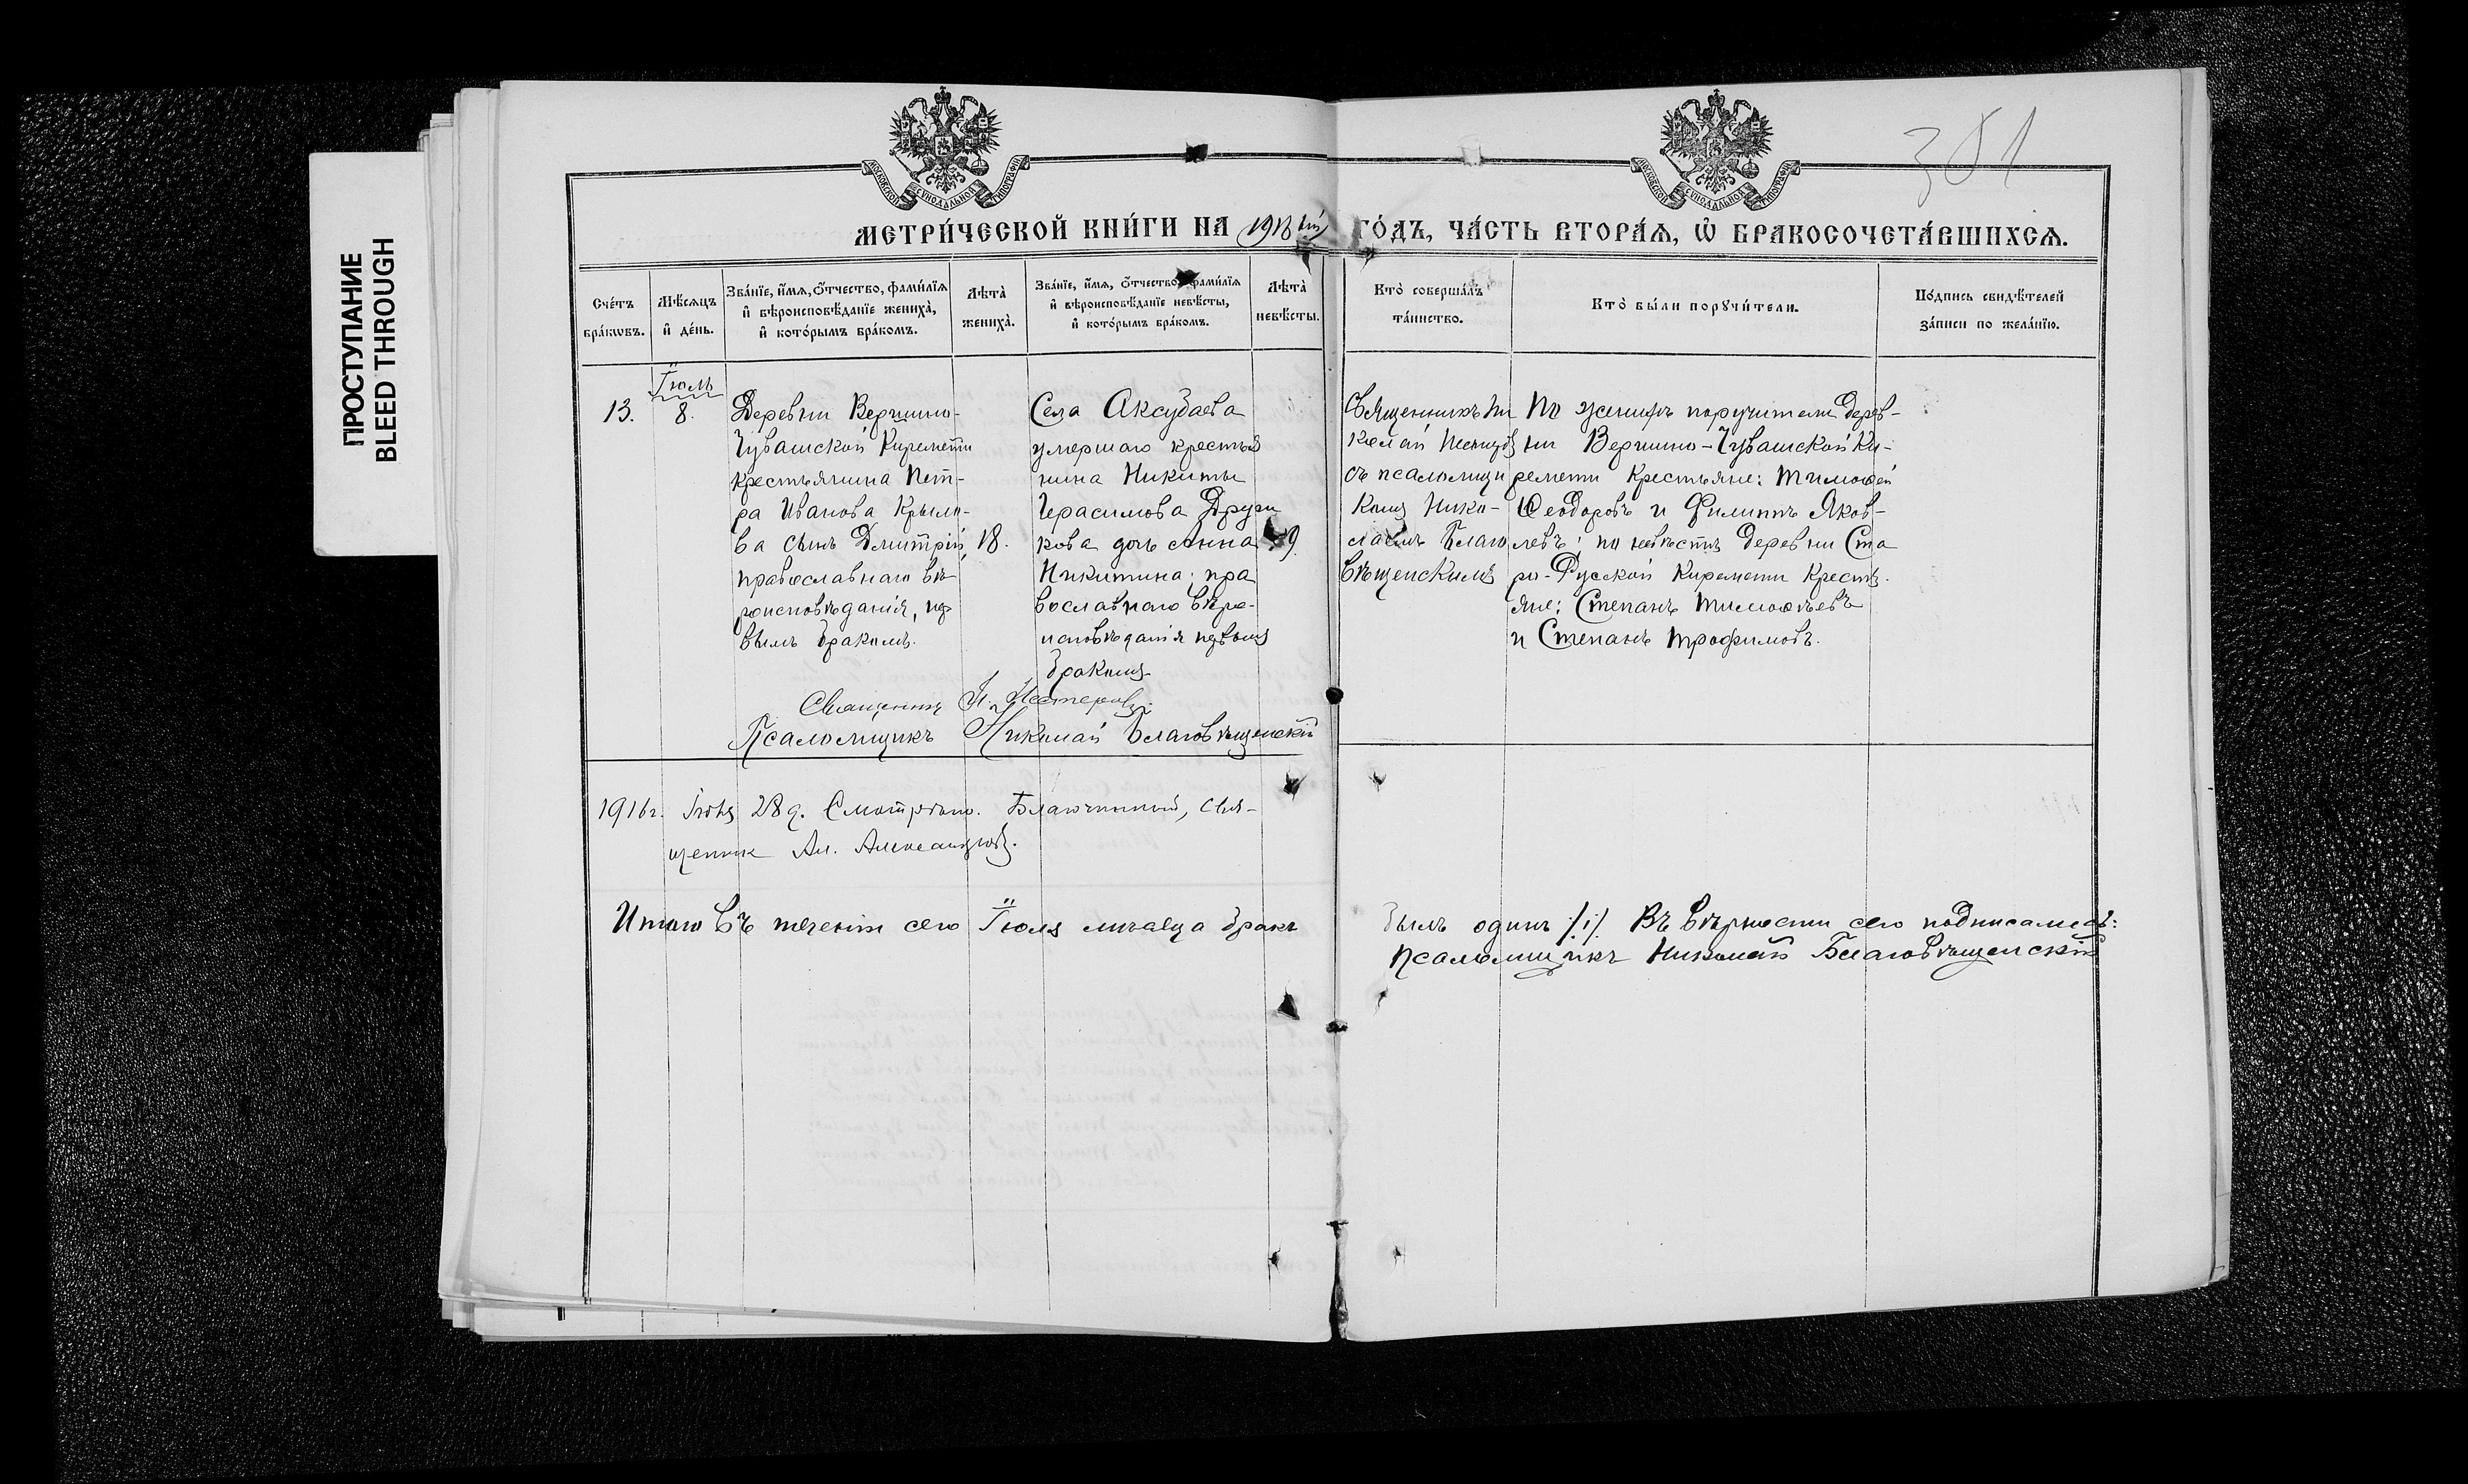 ПРОСТУПАНИЕ
BLEED THROUGH
301
МОСКОВСКОЙ СУНОДАЛЬНОЙ ТИПОГРАФІИ
МОСКОВСКОЙ СУНОДАЛЬНОЙ ТИПОГРАФІИ
МЕТРИ́ЧЕСКОЙ КНИ́ГИ НА
ГО́ДЪ, ЧА́СТЬ ВТОРА́Ѧ, Ѽ БРАКОСОЧЕТА́ВШИХСѦ.
Сче́тъ
бра́кѡвъ.
Мѣ́сѧцъ
и҆ де́нь.
Зва́нїе, и҆́мѧ, ѻ҆́тчество, фами́лїѧ
и҆ вѣроисповѣ́данїе жениха̀,
и҆ кото́рымъ бра́комъ.
Лѣ́та
жениха̀.
Зва́нїе, и҆́мѧ, ѻ҆́тчество, фами́лїѧ
и҆ вѣроисповѣ́данїе невѣ́сты,
и҆ кото́рымъ бра́комъ.
Лѣ́та
невѣ́сты.
Кто̀ соверша́лъ
та́инство.
Кто̀ бы́ли порꙋчи́тели.
По́дпись свидѣ́телей
за́писи по жела́нїю.
13.
Іюль
8.
Деревни Вершино-
Чувашской Киремети
крестьянина Пет-
ра Иванова Крыло-
ва сынъ Дмитрій,
православнаго вѣ-
роисповѣданія, пер
вымъ бракомъ.
18.
Села Аксубаева
умершаго крестья
нина Никиты
Герасимова Други
кова дочь Анна
Никитина; пра
вославнаго вѣро-
исповѣданія первымъ
бракомъ
Священникъ Ни
колай Нестеровъ
съ псаломщи
комъ Нико-
лаемъ Благо
вѣщенскимъ
По женихѣ поручители Дерев-
ни Вершино-Чувашской Ки-
ремети Крестьяне: Тимоѳей
Ѳеодоровъ и Филиппъ Яков-
левъ; по невѣстѣ деревни Ста
ро-Русской Киремети Кресть-
яне: Степанъ Тимоѳѣевъ
и Степанъ Трофимовъ.
Священникъ Н. Нестеровъ.
Псаломщикъ Николай Благовѣщенскій
1916 г. 28 д. Смотрѣно. Благочинный, свя-
щенник Ал. Александровъ.
Итого въ теченіи сего Іюля мѣсяца бракъ
былъ одинъ /1/. Въ вѣрности сего подписался:
псаломщикъ Николай Благовѣщенскій